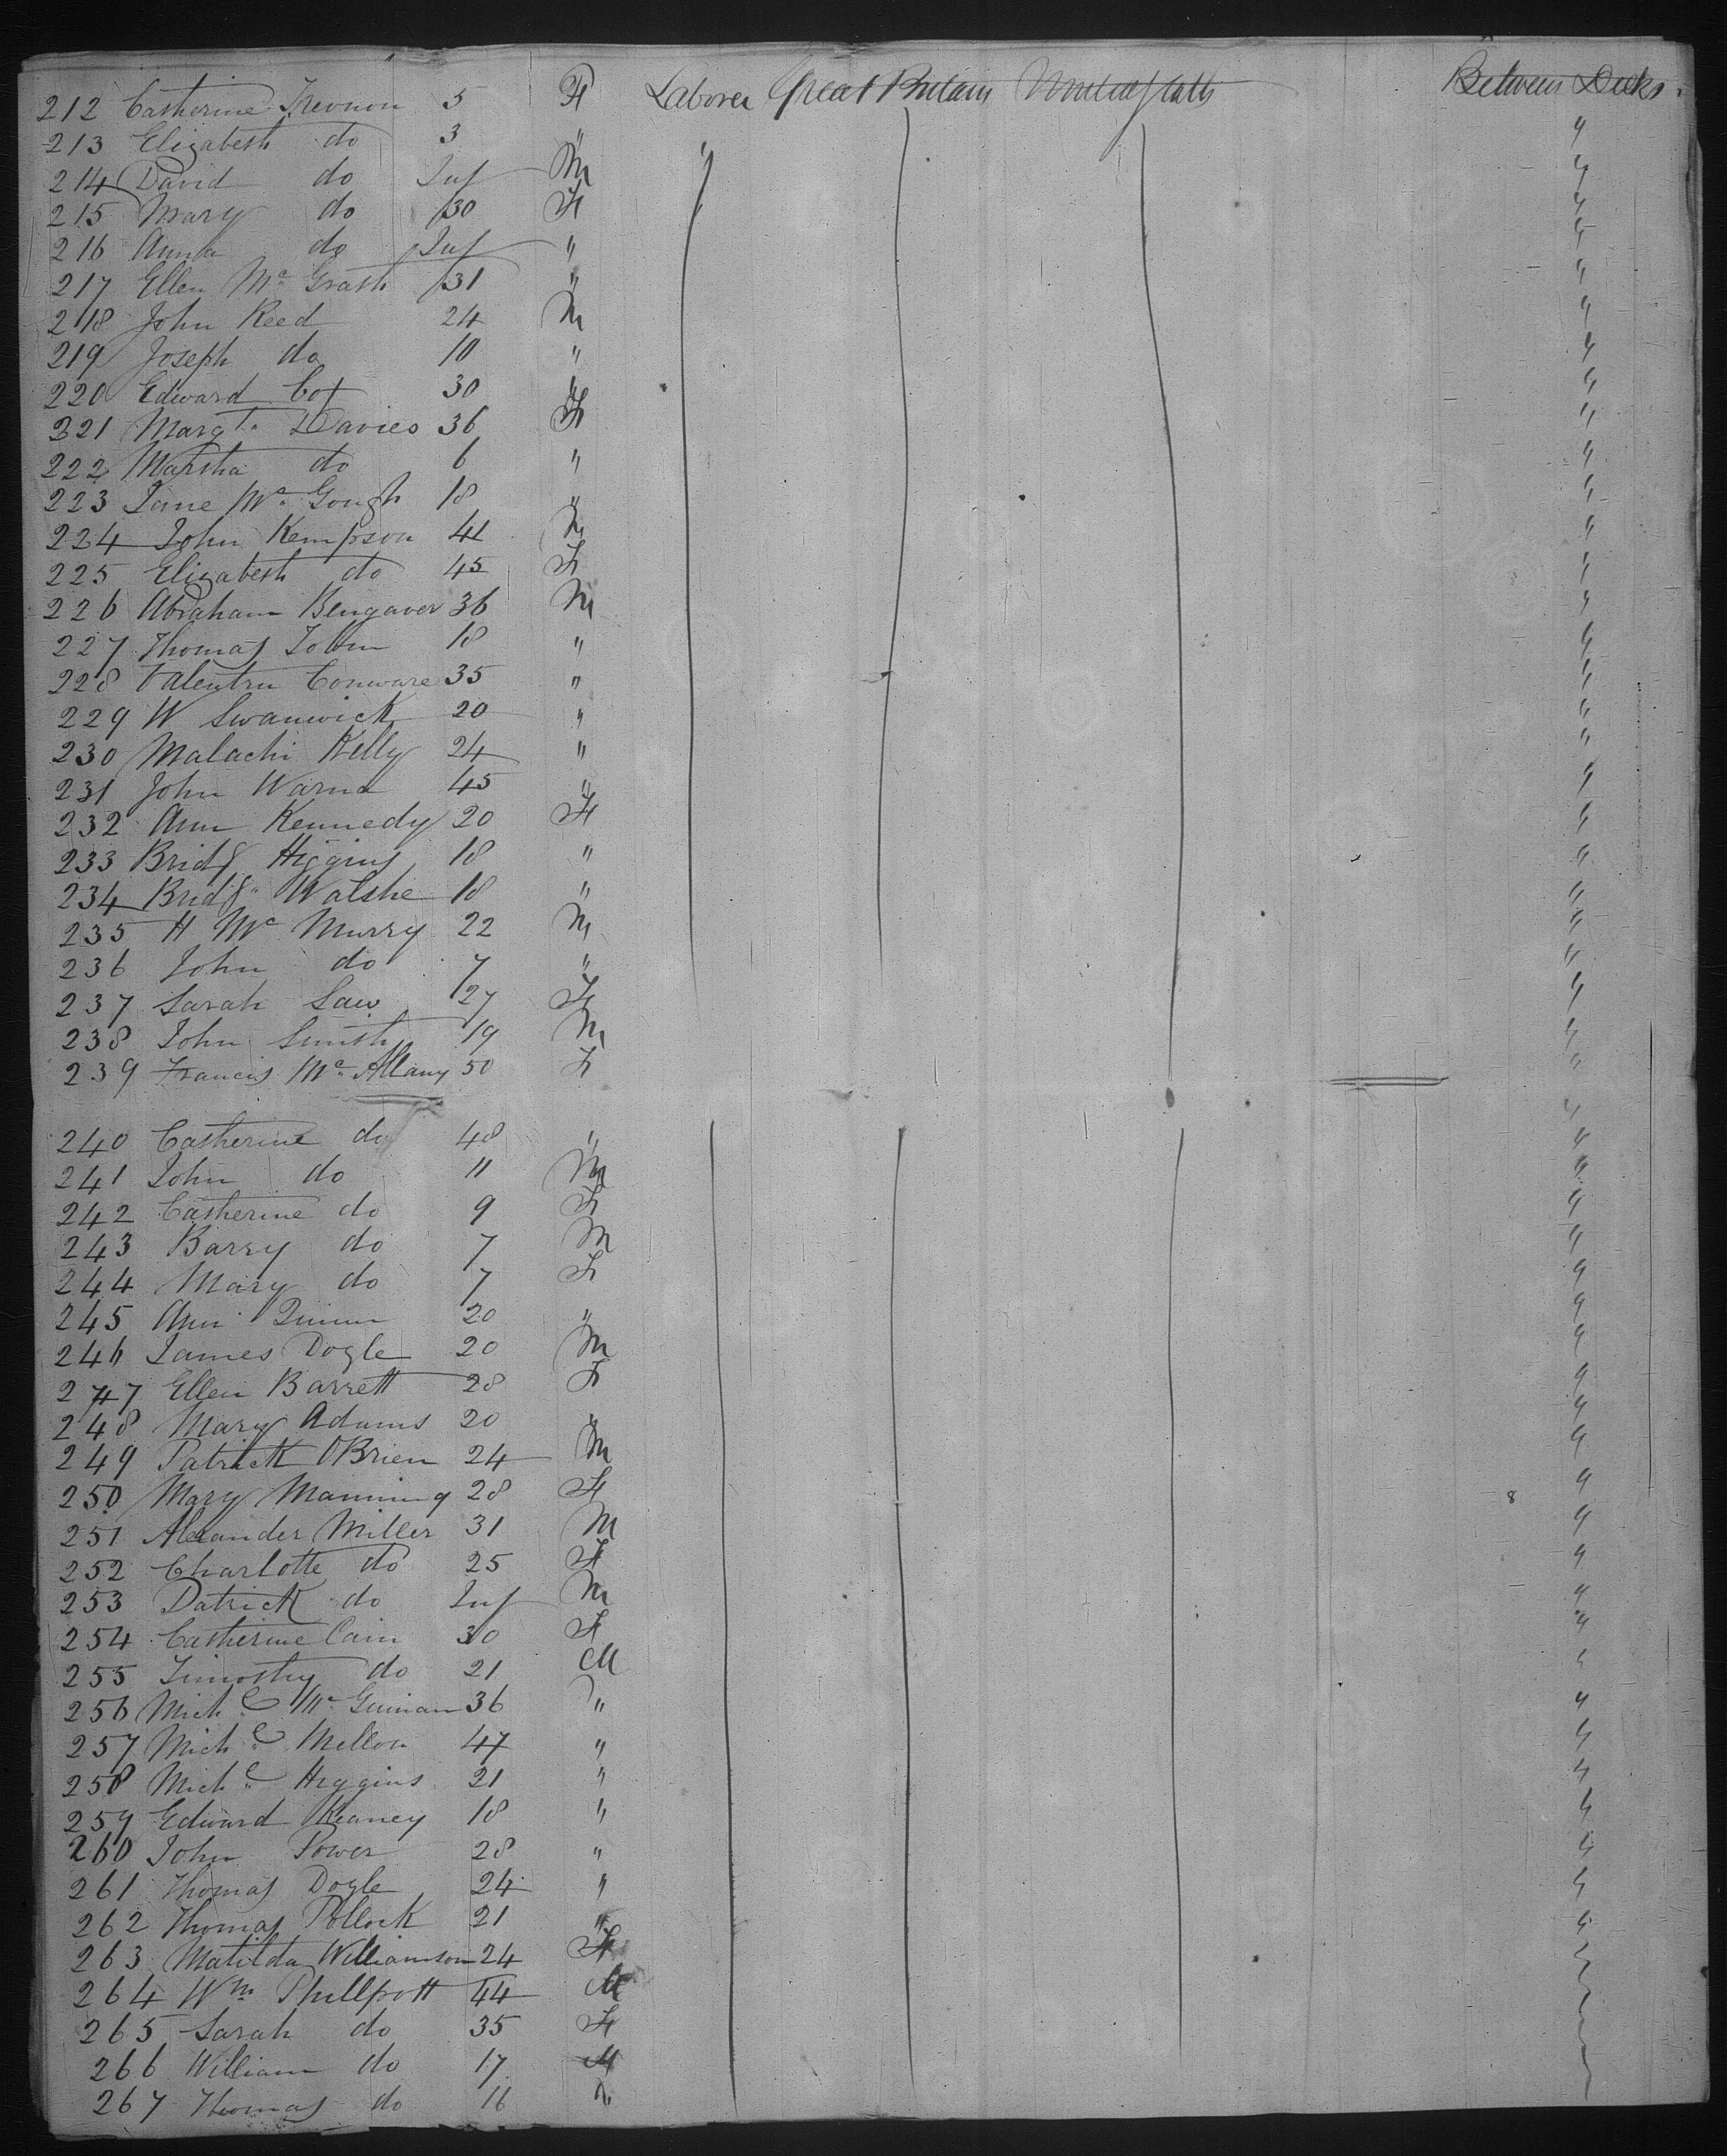 212 Catherine Trevnon 5 F Laborer Great Britain United States Between Decks.
213 Elizabeth do 3 " " "
214 David do Inf M "
215 Mary do 30 F "
216 Anna do Inf " "
217 Ellen Mc Grath 31 " "
218 John Reed 24 M "
219 Joseph do 10 " "
220 Edward Cox 30 " "
221 Margt. Davies 36 F "
222 Martha do 6 " "
223 Jane Mc Gough 18 " "
224 John Kempson 41 M "
225 Elizabeth do 45 F "
226 Abraham Bengaver 36 M "
227 Thomas Tobin 18 " "
228 Valentin Conware 35 " "
229 W Swanwick 20 " "
230 Malachi Kelly 24 " "
231 John Warna 45 " "
232 Ann Kennedy 20 F "
233 Bridg Higgins 18 " "
234 Bridg" Walshe 18 " "
235 H Mc Murry 22 M "
236 John do 7 " "
237 Sarah Law 27 F "
238 John Smith 19 M "
239 Francis Mc Allany 50 F "
240 Catherine do 48 " "
241 John do 11 M "
242 Catherine do 9 F "
243 Barry do 7 M "
244 Mary do 7 F "
245 Ann Quinn 20 " "
246 James Doyle 20 M "
247 Ellen Barrett 28 F "
248 Mary Adams 20 " "
249 Patrick OBrien 24 M "
250 Mary Manning 28 F "
251 Alexander Miller 31 M "
252 Charlotte do 25 F "
253 Patrick do Inf M "
254 Catherine Cain 30 F "
255 Timothy do 21 M "
256 Michl Mc Guinan 36 " "
257 Michl Mellon 47 " "
258 Michl Higgins 21 " "
259 Edward Keaney 18 " "
260 John Power 28 " "
261 Thomas Doyle 24 " "
262 Thomas Pollock 21 " "
263 Matilda Williamson 24 F
264 Wm Phillpott 44 M
265 Sarah do 35 F
266 William do 17 M
267 Thomas do 16 "